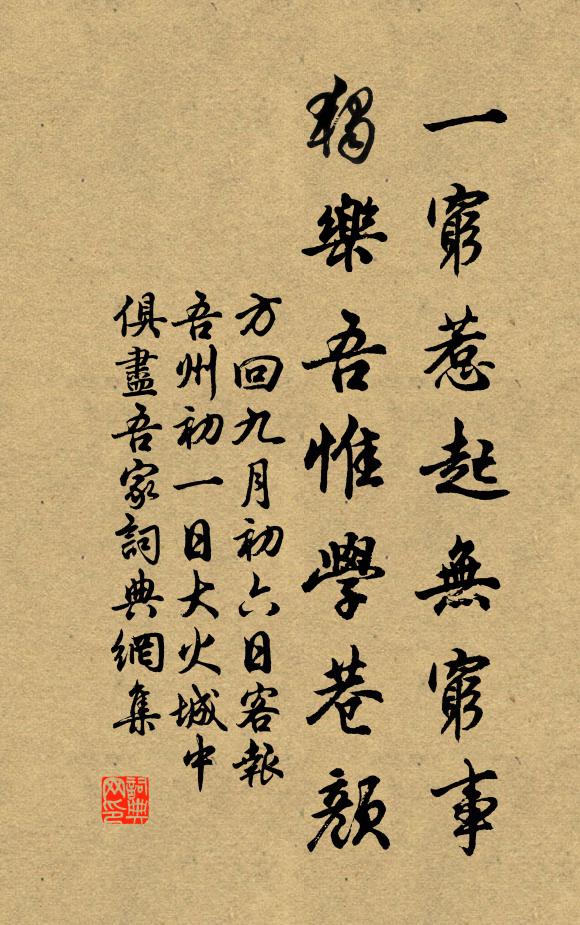 一窮惹起無窮事
獨樂吾惟學巷顏
方回九月初六日客報
吾州初一日大火城中
俱盡吾家詞典網集
詞典網印